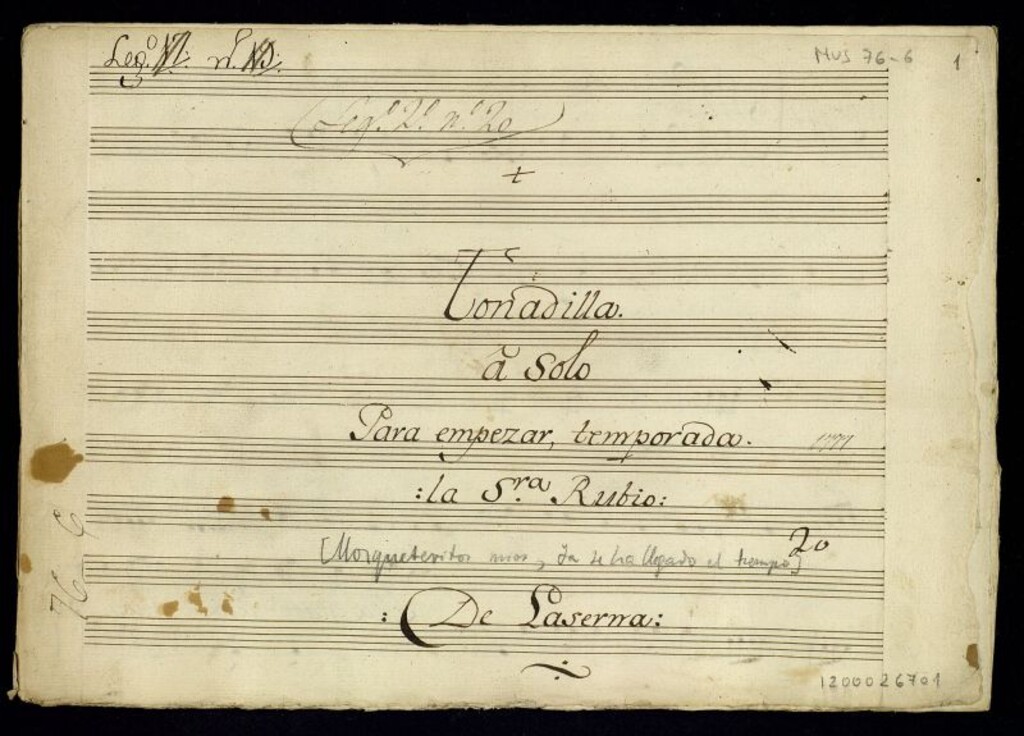 Leg.º n.º
MUS 76-6
1
Leg.º 2.º n.º 20
Tonadilla.
à solo
Para empezar, temporada.
1771
:la S.ra Rubio:
20
[Mosqueteritos mios, Ya se ha llegado el tiempo]
:De Laserna:
76 6
1200026701